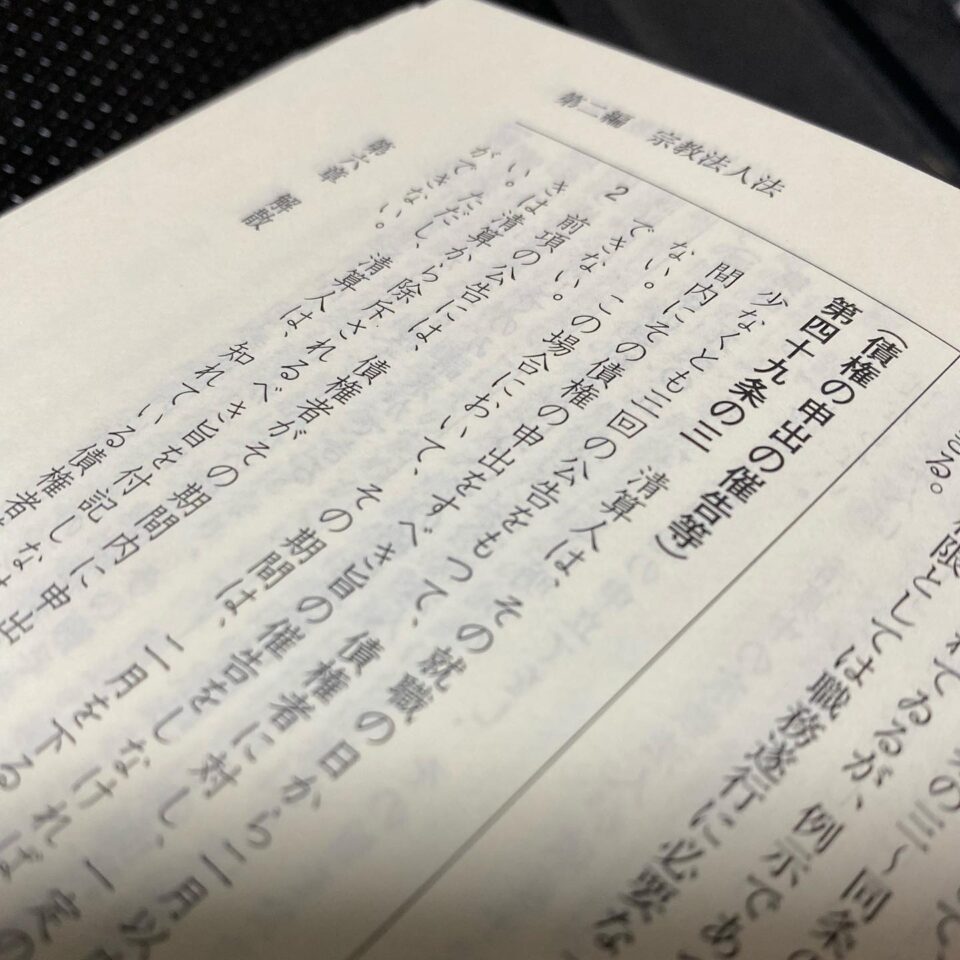 第二編　宗教法人法
の三～同条の
れてゐるが、例示であ
権限としては職務遂行に必要な
る。
（債権の申出の催告等）
第四十九条の三　清算人は、その就職の日から二月以
少なくとも三回の公告をもつて、債権者に対し、一定の
間内にその債権の申出をすべき旨の催告をしなければ
ない。この場合において、その期間は、二月を下る
できない。
2　前項の公告には、債権者がその期間内に申出
きは清算から除斥されるべき旨を付記しな
い。ただし、清算人は、知れている債権者
ができない。
第六章　解散